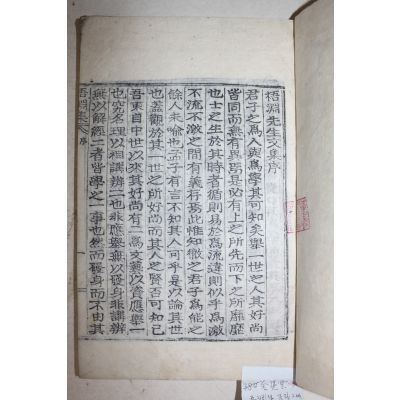 梧淵先生文集序
君子之爲人與爲學其可知矣擧一世之人其好尚
皆同而無有異焉是必有上之所先而下之所靡靡
也士之生於其時者循則易於爲流違則似乎爲激
不流不激之間有義存焉此惟知微之君子爲能之
餘人未喩也孟子有言不知其人可乎是以論其世
也蓋觀於其一世之所好尚而其人之賢否可知已
吾東自中世以來其好尚有二焉文藝以資應擧一
也究名理以相講辨二也非應擧無以發身非講辨
無以解經二者皆學之一事也然而發身而不由其
梧淵集 序